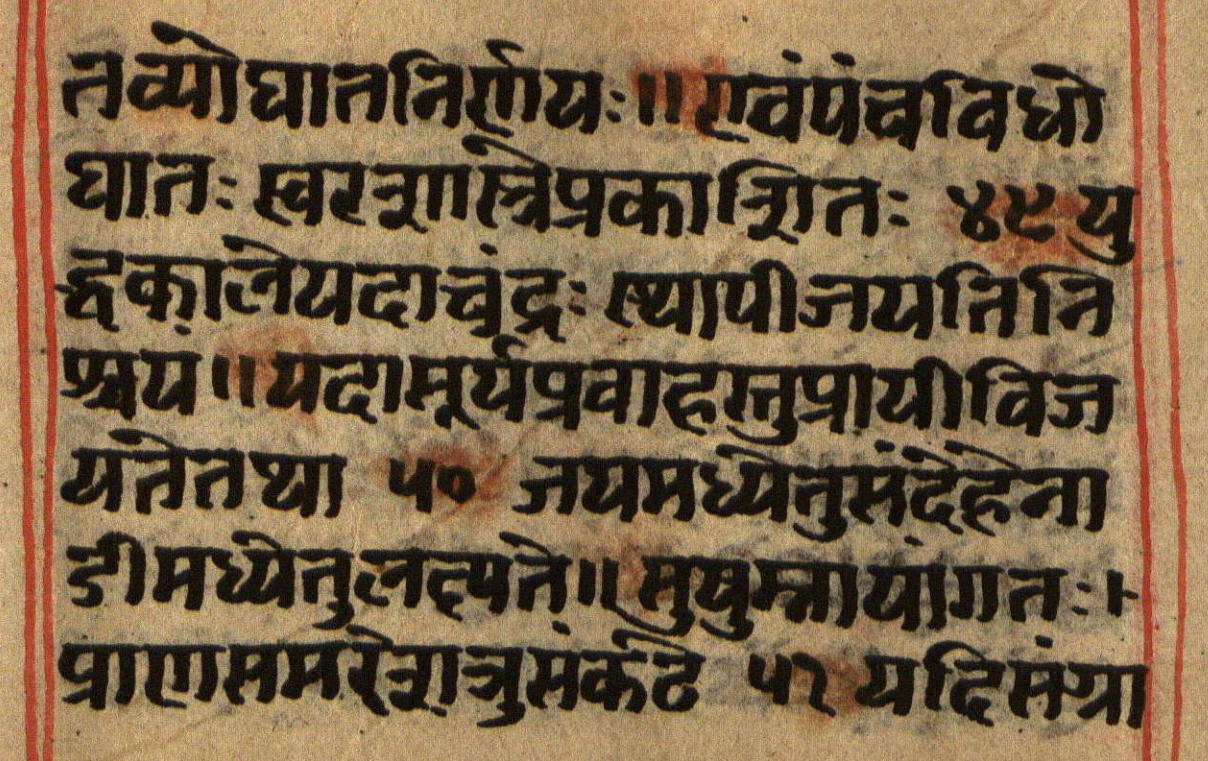 तव्योघातनिर्णयः॥एवंपंचविधो
घातः स्वरशास्त्रेप्रकाशितः ४९ यु
द्धकालेयदाचंद्रः स्थायीजयतिनि
श्चय॥यदासूर्यप्रवाहस्तुप्रायीविज
यतेतथा ५० जयमध्येतुसंदेहेना
डीमध्येतुलत्पते॥सुषुम्नायांगतः।
प्राणसमरेशत्रुसंकटे ५१ यदिसंग्रा